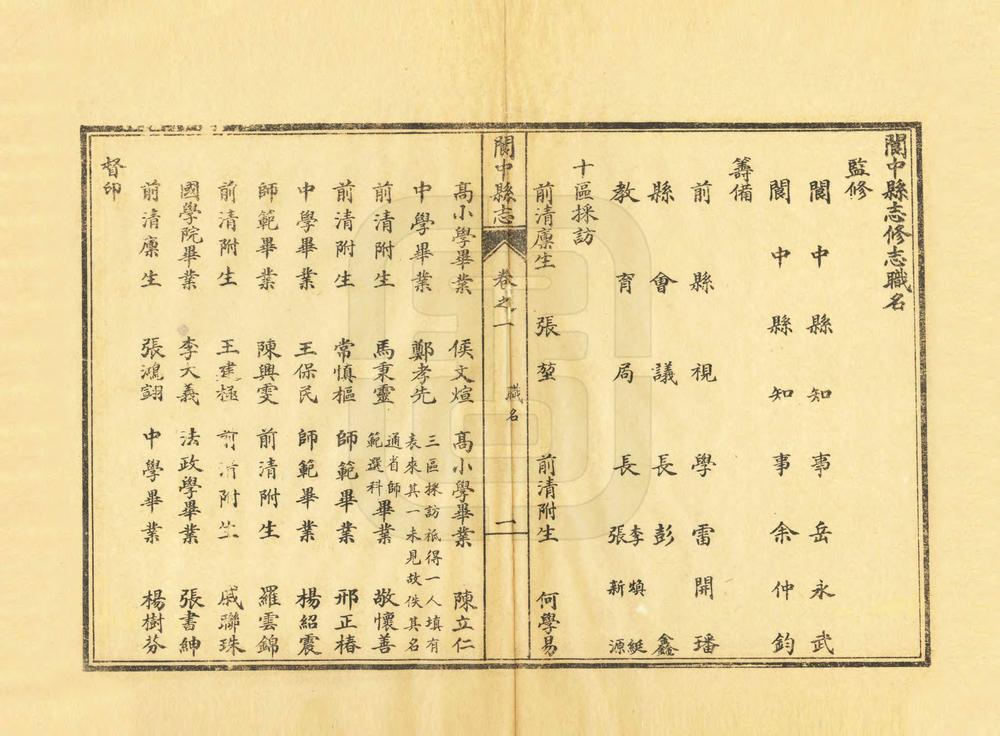 閬中縣志修志職名
監修
閬中縣知事岳永武
閬中縣知事余仲鈞
籌備
前縣視學雷開璠
縣會議長彭鑫
教育局長李煥綎
張新源
十區採訪
前清廩生 張堃 前清附生 何學易
閬中縣志 卷之一 職名 二
高小學畢業 侯文煊 高小學畢業 陳立仁
中學畢業 鄭孝先 三區採訪祇得一人填有
表來其一未見故佚其名
前清附生 馬秉靈 通省師範選科畢業 敬懷善
前清附生 常慎樞 師範畢業 邢正椿
中學畢業 王保民 師範畢業 楊紹震
師範畢業 陳興雯 前清附生 羅雲錦
前清附生 王建極 前清附生 戚聯珠
國學院畢業 李大義 法政學畢業 張書紳
前清廩生 張鴻翊 中學畢業 楊樹芬
督印